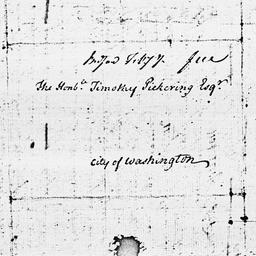 free
The Honble. Timothy Pickering Esqr.
City of Washington